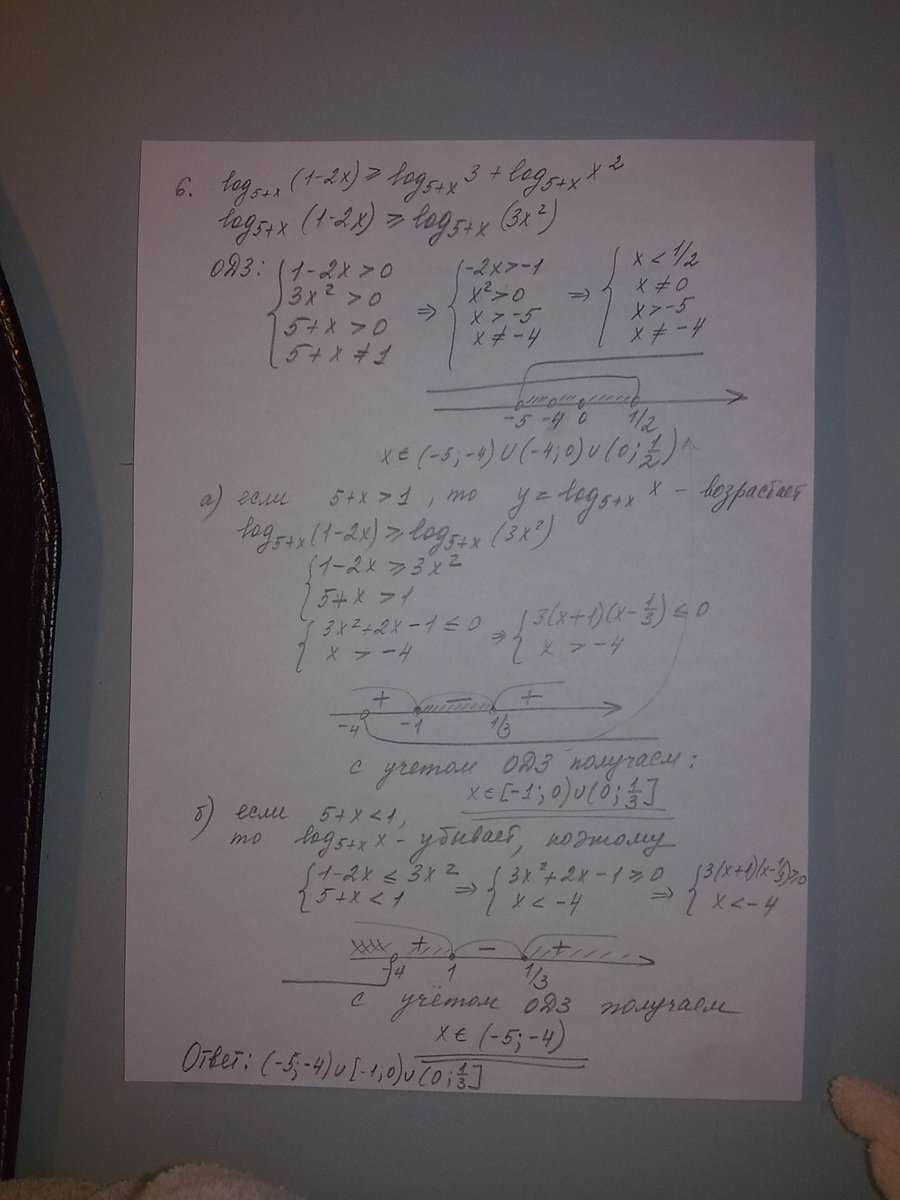 6. log₅₊ₓ (1-2x) ≥ log₅₊ₓ 3 + log₅₊ₓ x²
log₅₊ₓ (1-2x) ≥ log₅₊ₓ (3x²)
ОДЗ: { 1-2x > 0 ⇒ { -2x > -1 ⇒ { x < 1/2
3x² > 0 x² > 0 x ≠ 0
5+x > 0 x > -5 x > -5
5+x ≠ 1 x ≠ -4 x ≠ -4
-5 -4 0 1/2
x ∈ (-5; -4) ∪ (-4; 0) ∪ (0; 1/2)
а) если 5+x > 1, то y = log₅₊ₓ x - возрастает
log₅₊ₓ (1-2x) ≥ log₅₊ₓ (3x²)
{ 1-2x ≥ 3x²
5+x > 1
{ 3x²+2x-1 ≤ 0 ⇒ { 3(x+1)(x-1/3) ≤ 0
x > -4 x > -4
+ - +
-4 -1 1/3
с учетом ОДЗ получаем:
x ∈ [-1; 0) ∪ (0; 1/3]
б) если 5+x < 1,
то log₅₊ₓ x - убывает, поэтому
{ 1-2x ≤ 3x² ⇒ { 3x²+2x-1 ≥ 0 ⇒ { 3(x+1)(x-1/3) ≥ 0
5+x < 1 x < -4 x < -4
+ - +
-4 1 1/3
с учётом ОДЗ получаем
x ∈ (-5; -4)
Ответ: (-5; -4) ∪ [-1; 0) ∪ (0; 1/3]